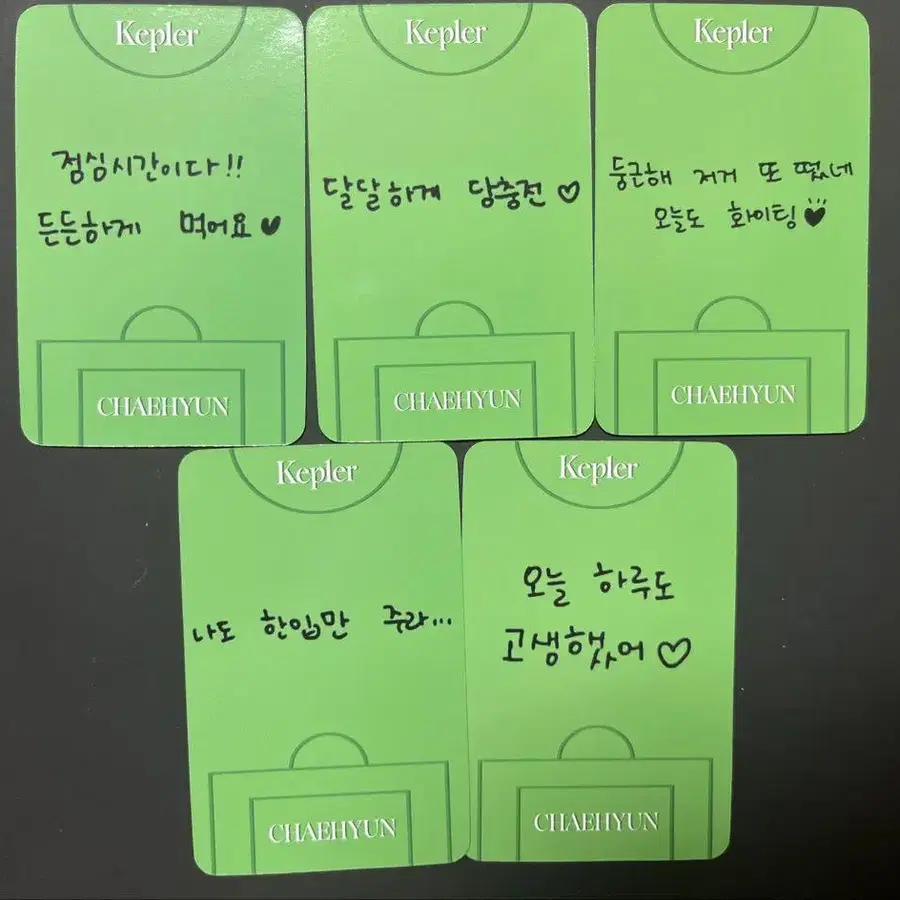 Kepler
점심시간이다!!
든든하게 먹어요♥
CHAEHYUN
Kepler
달달하게 당충전♡
CHAEHYUN
Kepler
둥근해 저거 또 떴네
오늘도 화이팅♥
CHAEHYUN
Kepler
나도 한입만 주라...
CHAEHYUN
Kepler
오늘 하루도
고생했어♡
CHAEHYUN